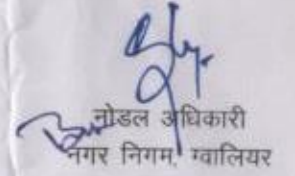 नोडल अधिकारी
नगर निगम, ग्वालियर